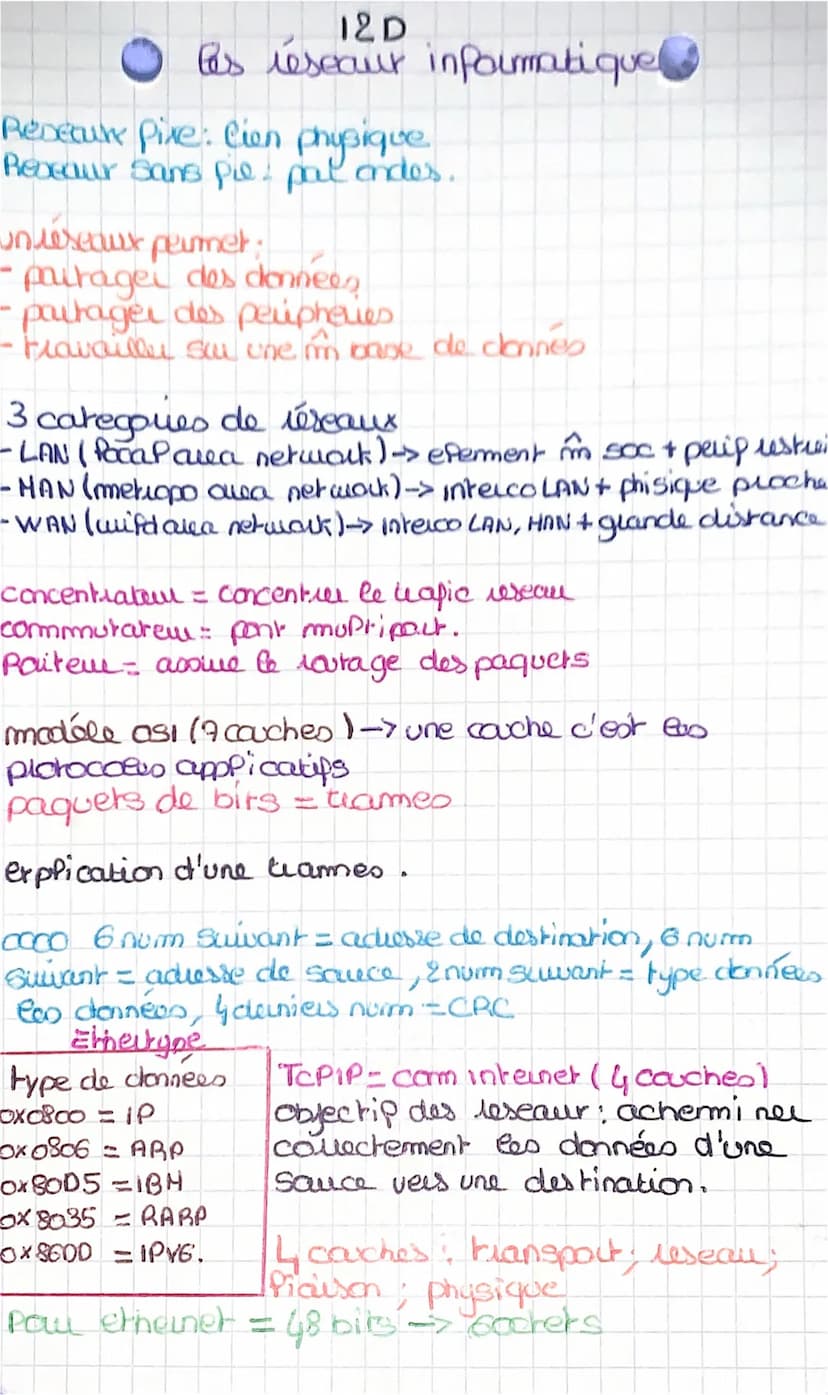 12D
les réseaux informatique
Réseaux fixe: lien physique
Réseaux sans fil: par ondes.
un réseaux permet:
- partager des données
- partager des peripheries
- travailler sur une m̂ base de donnés
3 categories de réseaux
- LAN (local area network) -> element m̂ soc + perip restrei
- MAN (metropo area network) -> interco LAN + phisique proche
- WAN (wifd area network) -> interco LAN, MAN + grande distance
concentrateur = concentrer le trafic reseau
commutateur = pont multiport.
Routeur = assure le routage des paquets
modéle OSI (7 couches) -> une couche c'est les
protocoles applicatifs
paquets de bits = trames
explication d'une trames.
6 num suivant = adresse de destination, 6 num
suivant = adresse de source, 2 num suivant = type données
les données, 4 derniers num = CRC
Ethertype
type de données
0x0800 = IP
0x0806 = ARP
0x80D5 = IBM
0x8035 = RARP
0x8600 = IPV6.
TCPIP = com internet (4 couches)
objectif des reseaux: achemi ner
correctement les données d'une
source vers une destination.
4 couches: transport; reseau;
liaison; physique
Pour ethernet = 48 bits -> 6 octets